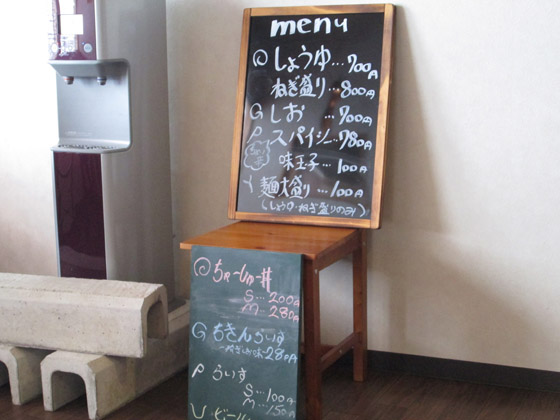 menu
しょうゆ…700円
ねぎ盛り…800円
しお 700円
スパイシー…780円
味玉子…100円
麺大盛り…100円
(しょうゆ・ねぎ盛りのみ)
ちゃーしゅー丼
S…200円
M…280円
ちきんらいす
280円
らいす
S…100円
M…150円
ビール